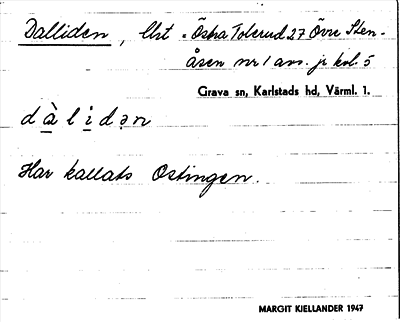 Dalliden, lht. Östra Tolerud 27 Övre Sten-
åsen nr 1 avs. jr kol. 5
Grava sn, Karlstads hd, Värml. l.
dàlidən
Har kallats Ostingen.
MARGIT KJELLANDER 1947